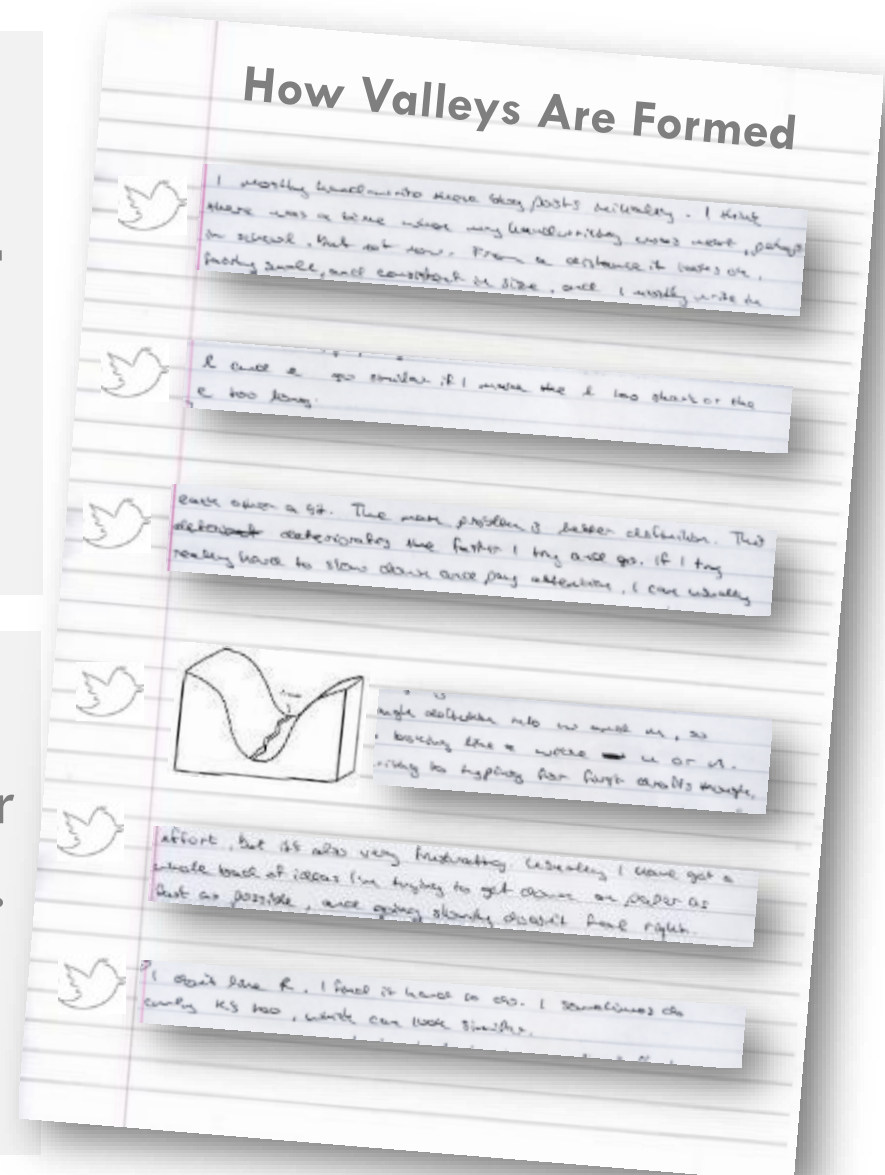 How Valleys Are Formed
I mostly handwrite these blog posts initially. I think
there was a time when my handwriting was neat, perhaps
in school, but not now. From a distance it looks ok,
fairly small, and consistent in size, and I mostly write in
l and e go similar if I make the l too short or the
e too long.
each other a bit. The main problem is letter definition. This
deteriorates the faster I try and go. if I try
really hard to slow down and pay attention, I can usually
definition into and m, so
looking like a u or n.
to typing for first drafts though.
effort, but it's also very frustrating. Usually I have got a
whole load of ideas I'm trying to get down on paper as
fast as possible, and going slowly doesn't feel right.
I don't like k. I find it hard to do. I sometimes do
curly ks too, which can look similar.
r
.